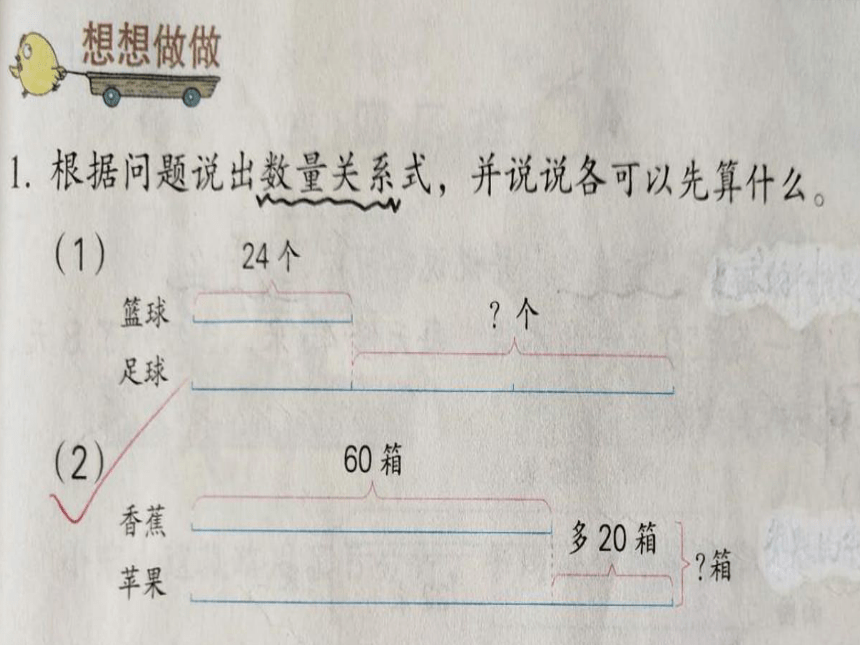 想想做做
1. 根据问题说出数量关系式，并说说各可以先算什么。
(1)
24个
篮球
? 个
足球
(2)
60箱
香蕉
多20箱
?箱
苹果